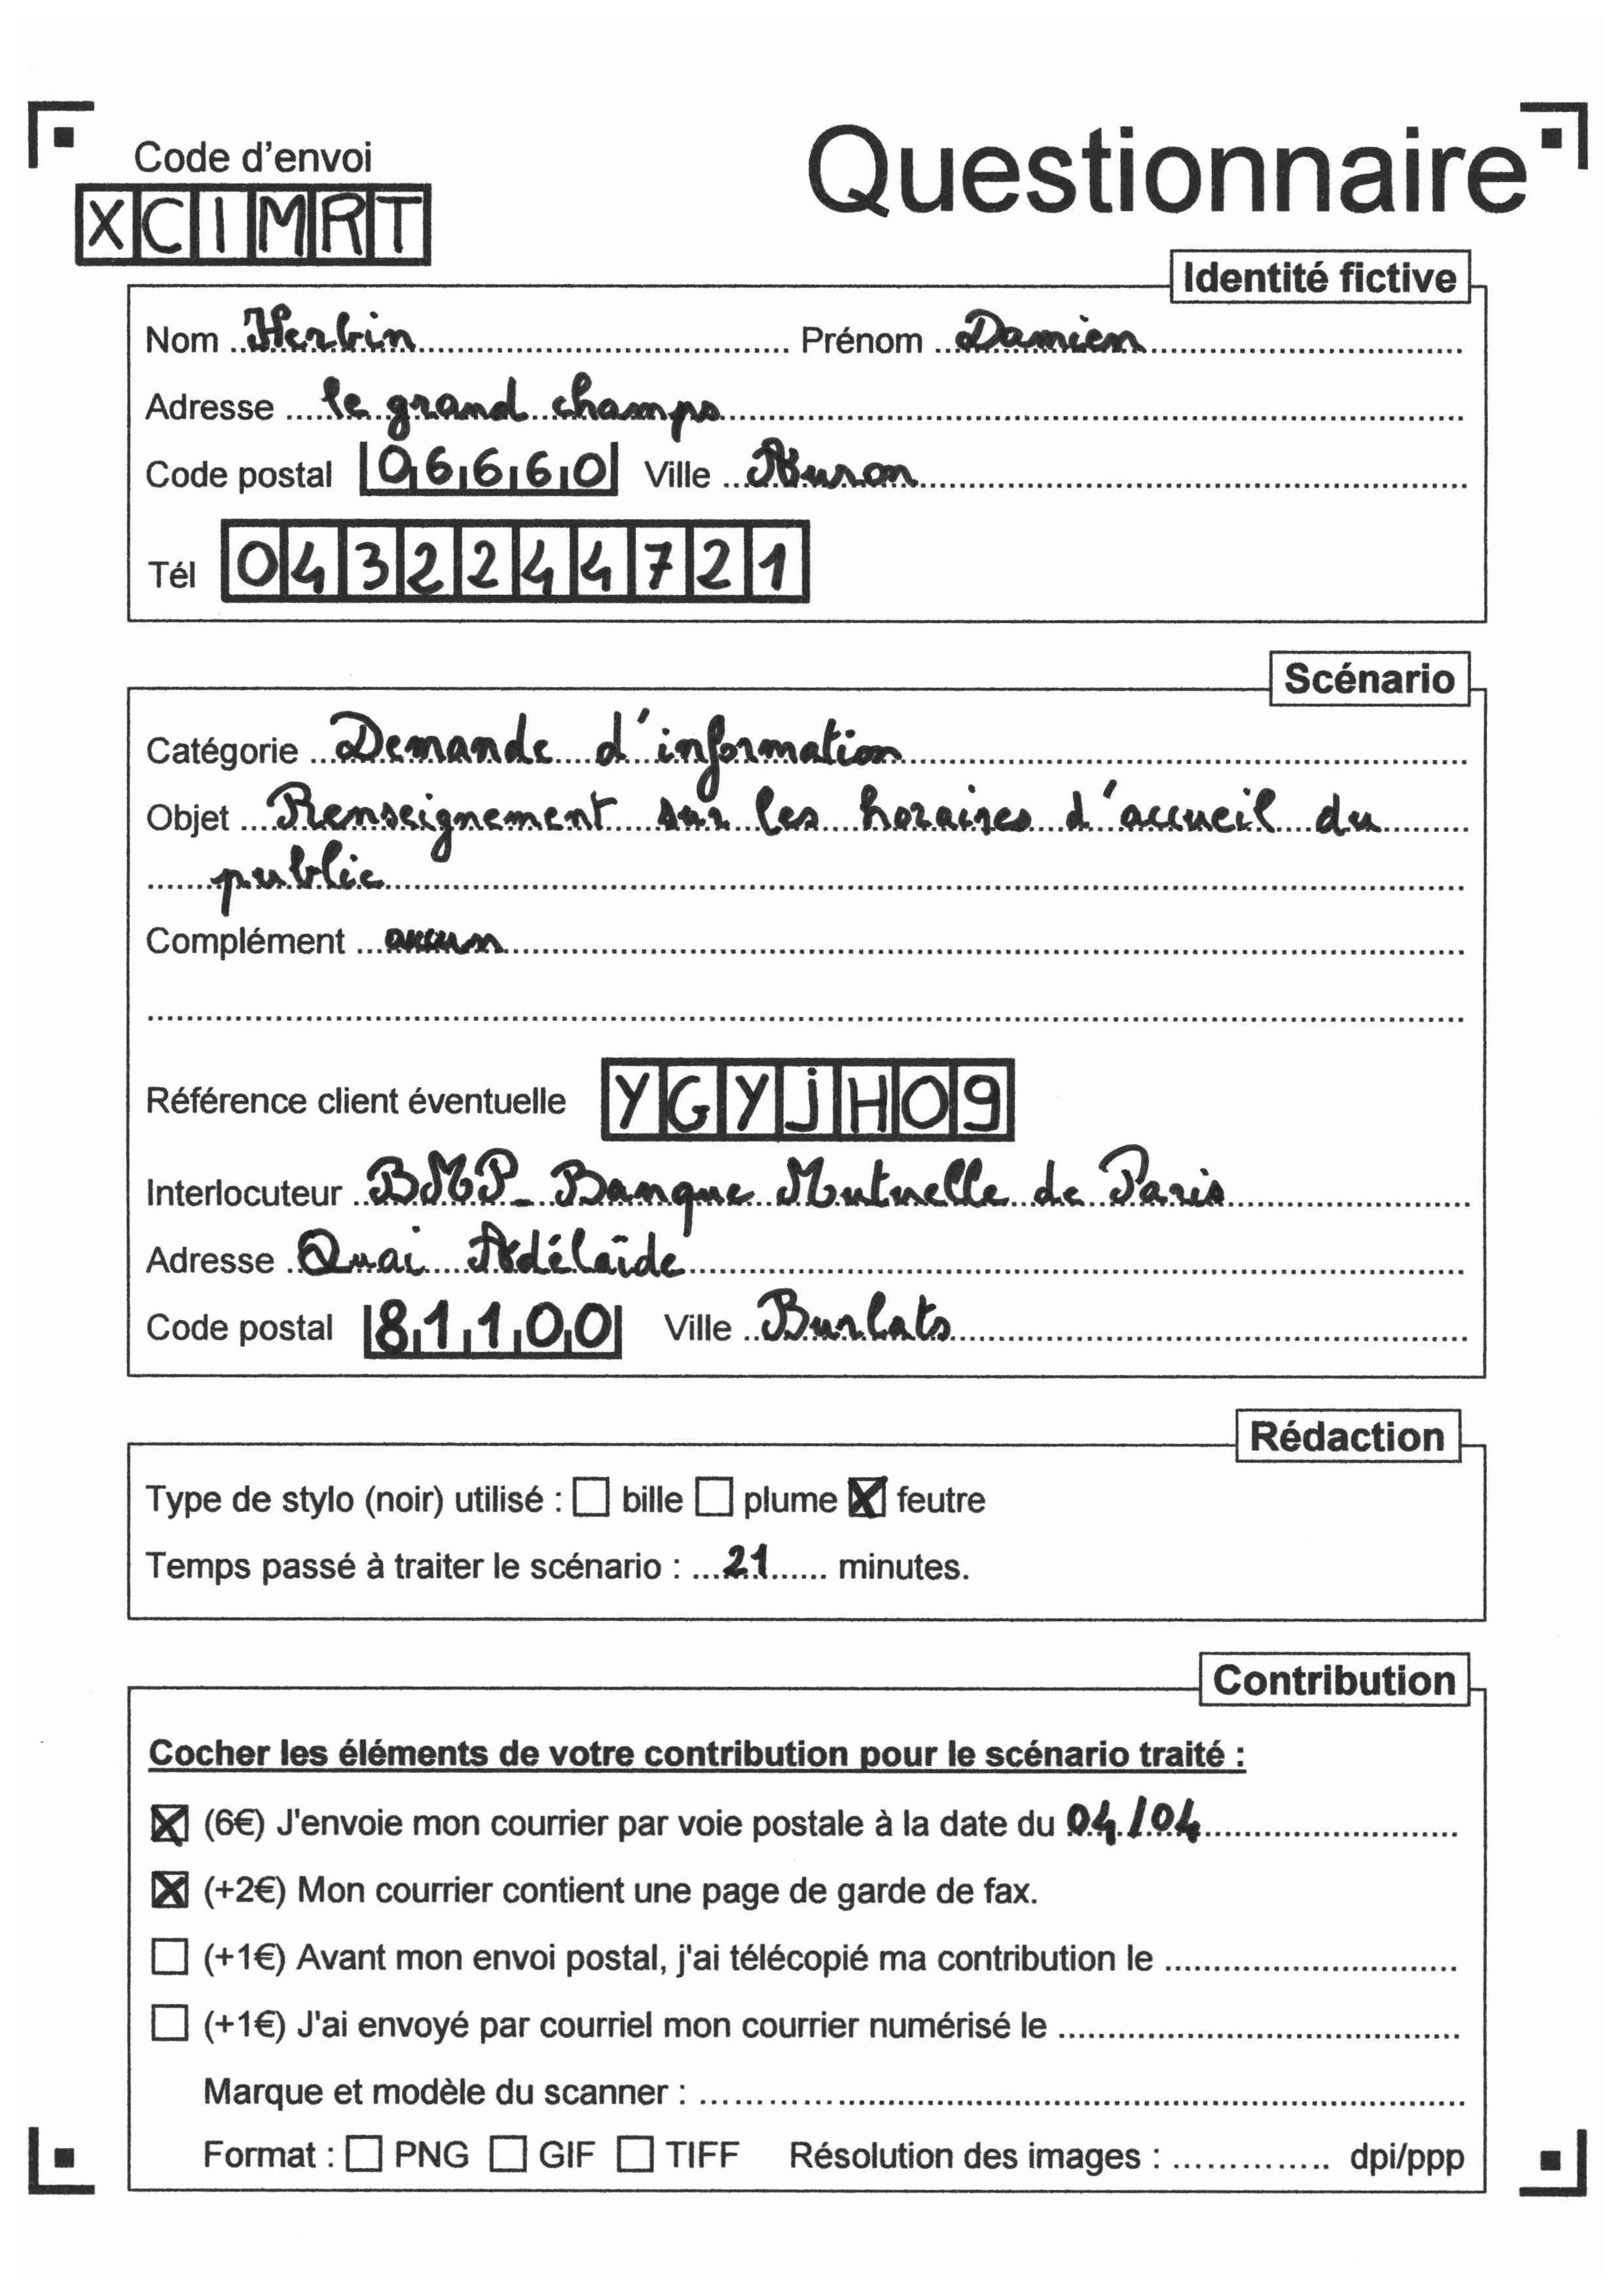 Code d'envoi
Questionnaire
XCIMRT
Identité fictive
Nom Herbin Prénom Damien
Adresse le grand champs
Code postal 06660 Ville Auron
Tél 0432244721
Scénario
Catégorie Demande d'information
Objet Renseignement sur les horaires d'accueil du
public
Complément aucun
Référence client éventuelle YGYJH09
Interlocuteur BMP_ Banque Mutuelle de Paris
Adresse Quai Adélaïde
Code postal 81100 Ville Burlats
Rédaction
Type de stylo (noir) utilisé : ☐ bille ☐ plume ☒ feutre
Temps passé à traiter le scénario : 21 minutes.
Contribution
Cocher les éléments de votre contribution pour le scénario traité :
☒ (6€) J'envoie mon courrier par voie postale à la date du 04/04
☒ (+2€) Mon courrier contient une page de garde de fax.
☐ (+1€) Avant mon envoi postal, j'ai télécopié ma contribution le
☐ (+1€) J'ai envoyé par courriel mon courrier numérisé le
Marque et modèle du scanner :
Format : ☐ PNG ☐ GIF ☐ TIFF Résolution des images : dpi/ppp